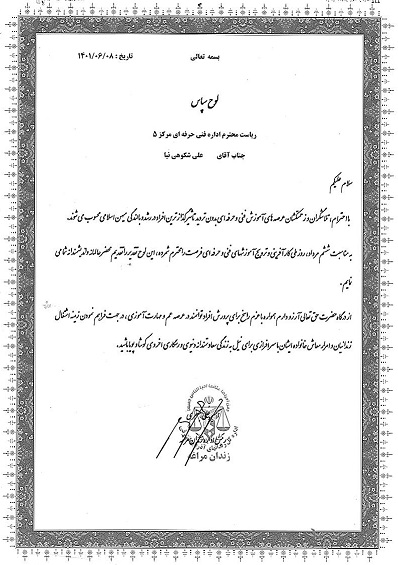 بسمه تعالی
تاریخ : ۱۴۰۱/۰۶/۰۸
لوح سپاس
ریاست محترم اداره فنی حرفه ای مرکز ۵
جناب آقای علی شکوهی نیا
سلام علیکم
با احترام، تلاشگران و زحمتکشان عرصه های آموزش فنی و حرفه ای بدون تردید تاثیرگذارترین افراد در رشد و بالندگی میهن اسلامی محسوب می شوند.
به مناسبت ششم مرداد، روز ملی کارآفرینی و ترویج آموزشهای فنی و حرفه ای فرصت را مغتنم شمرده، این لوح تقدیر را تقدیم محضر عالمانه و اندیشمندانه شما می
نمایم.
از درگاه حضرت حق تعالی آرزو دارم همواره با عزم راسخ برای پرورش افراد توانمند در عرصه علم و مهارت آموزی، در جهت فراهم نمودن زمینه اشتغال
زندانیان و امرار معاش خانواده ایشان با سرافرازی برای نیل به زندگی سعادتمندانه دنیوی و رستگاری اخروی کوشا و پویا باشید.
زندان مراغه